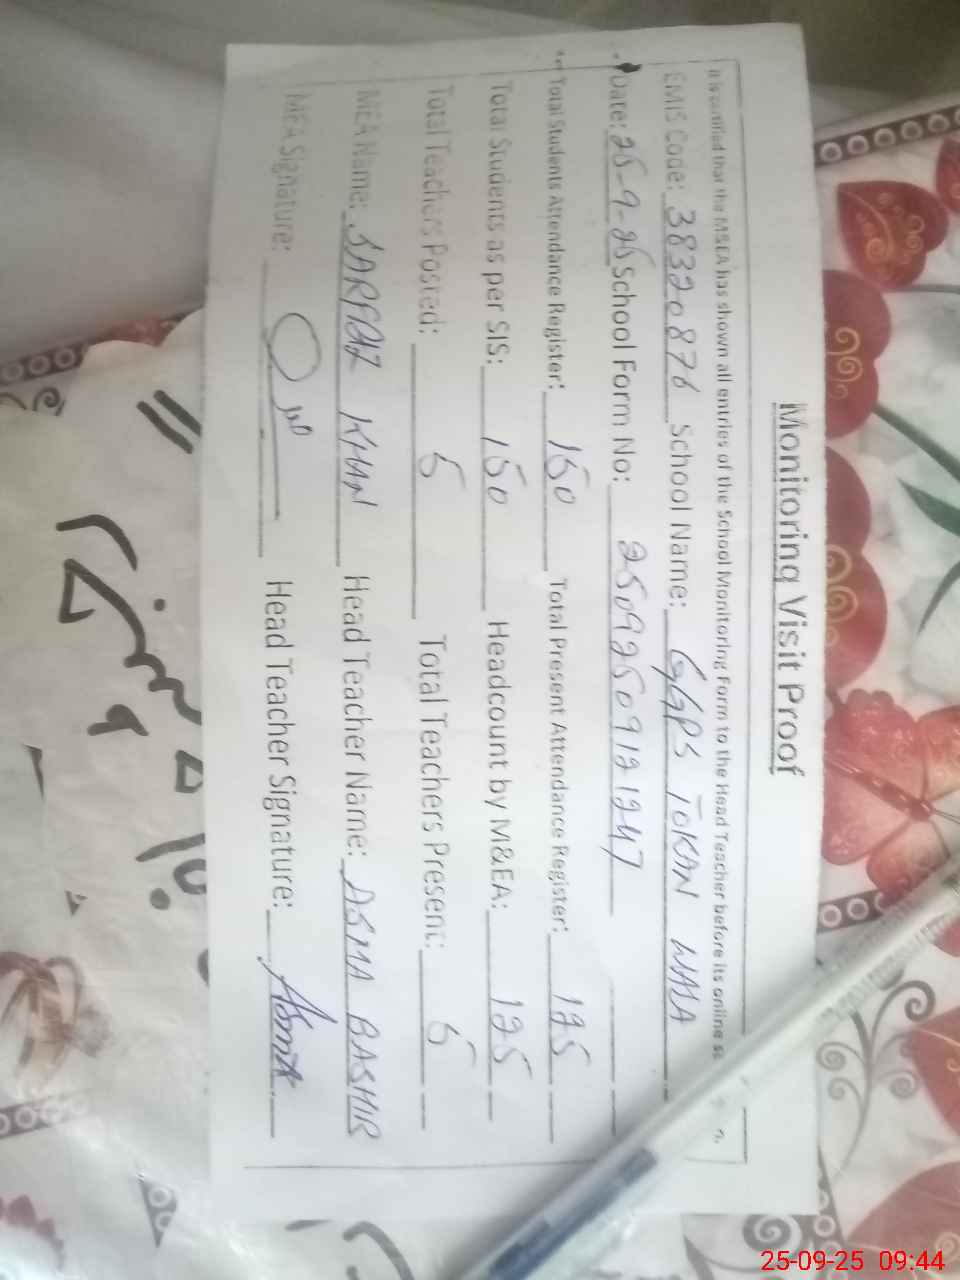 Monitoring Visit Proof
It is certified that the M&EA has shown all entries of the School Monitoring Form to the Head Teacher before its online
EMIS Code: 38320876 School Name: GGPS TOKAN WALA
Date: 25-9-25 School Form No: 25092509121247
Total Students Attendance Register: 150 Total Present Attendance Register: 125
Total Students as per SIS: 150 Headcount by M&EA: 125
Total Teachers Posted: 5 Total Teachers Present: 5
MEA Name: SARFRAZ KHAN Head Teacher Name: ASMA BASHIR
MEA Signature: Head Teacher Signature: Asma
25-09-25 09:44